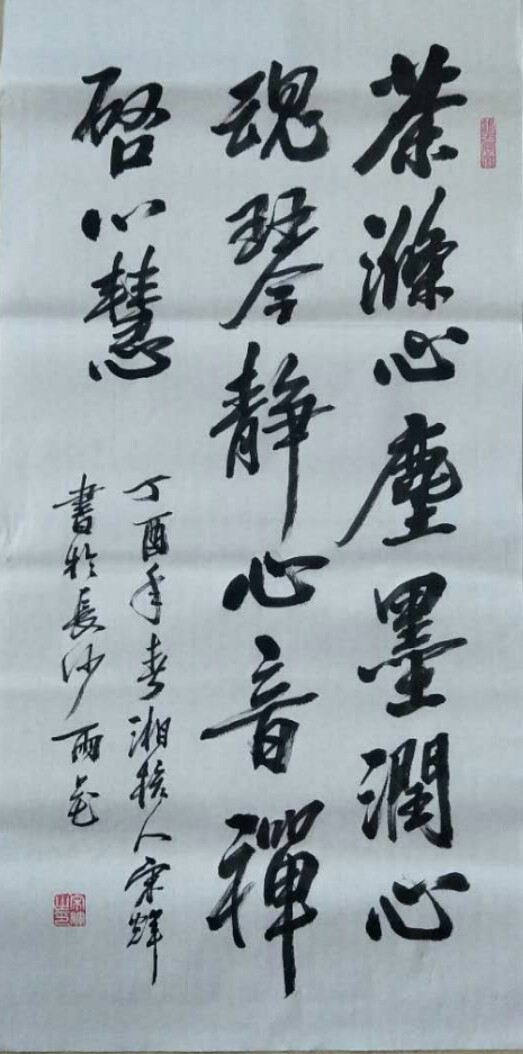 茶滌心塵墨潤心
魂琴靜心音禪
啓心慧
丁酉年春湘核人宋輝
書於長沙雨花